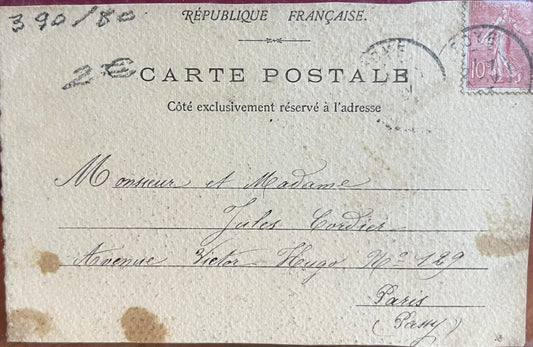 390/80
RÉPUBLIQUE FRANÇAISE.
2€
CARTE POSTALE
Côté exclusivement réservé à l'adresse
10
Monsieur et Madame
Jules Cordier
Avenue Victor Hugo, Nº 129
Paris
(Passy)